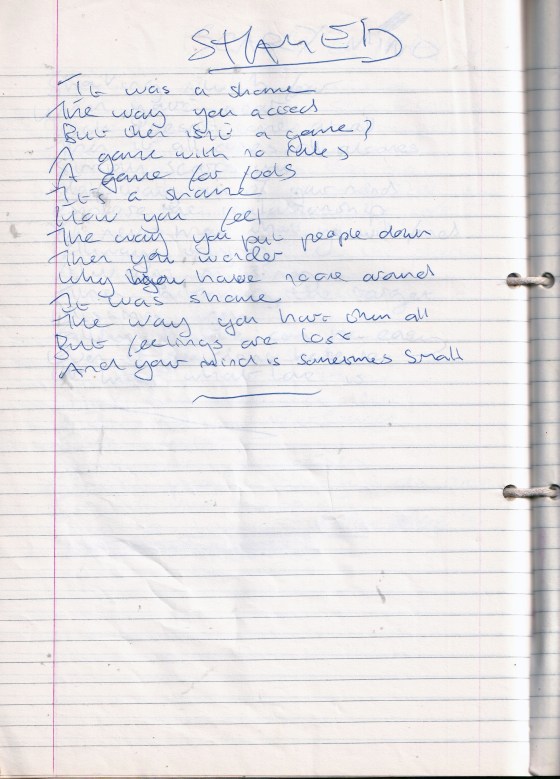 SHAMED
It was a shame
The way you acted
But then isit a game?
A game with no rules
A game for fools
It's a shame
How you feel
The way you put people down
Then you wonder
Why you have none around
It was shame
The way you hurt them all
But feelings are lost
And your mind is sometimes small